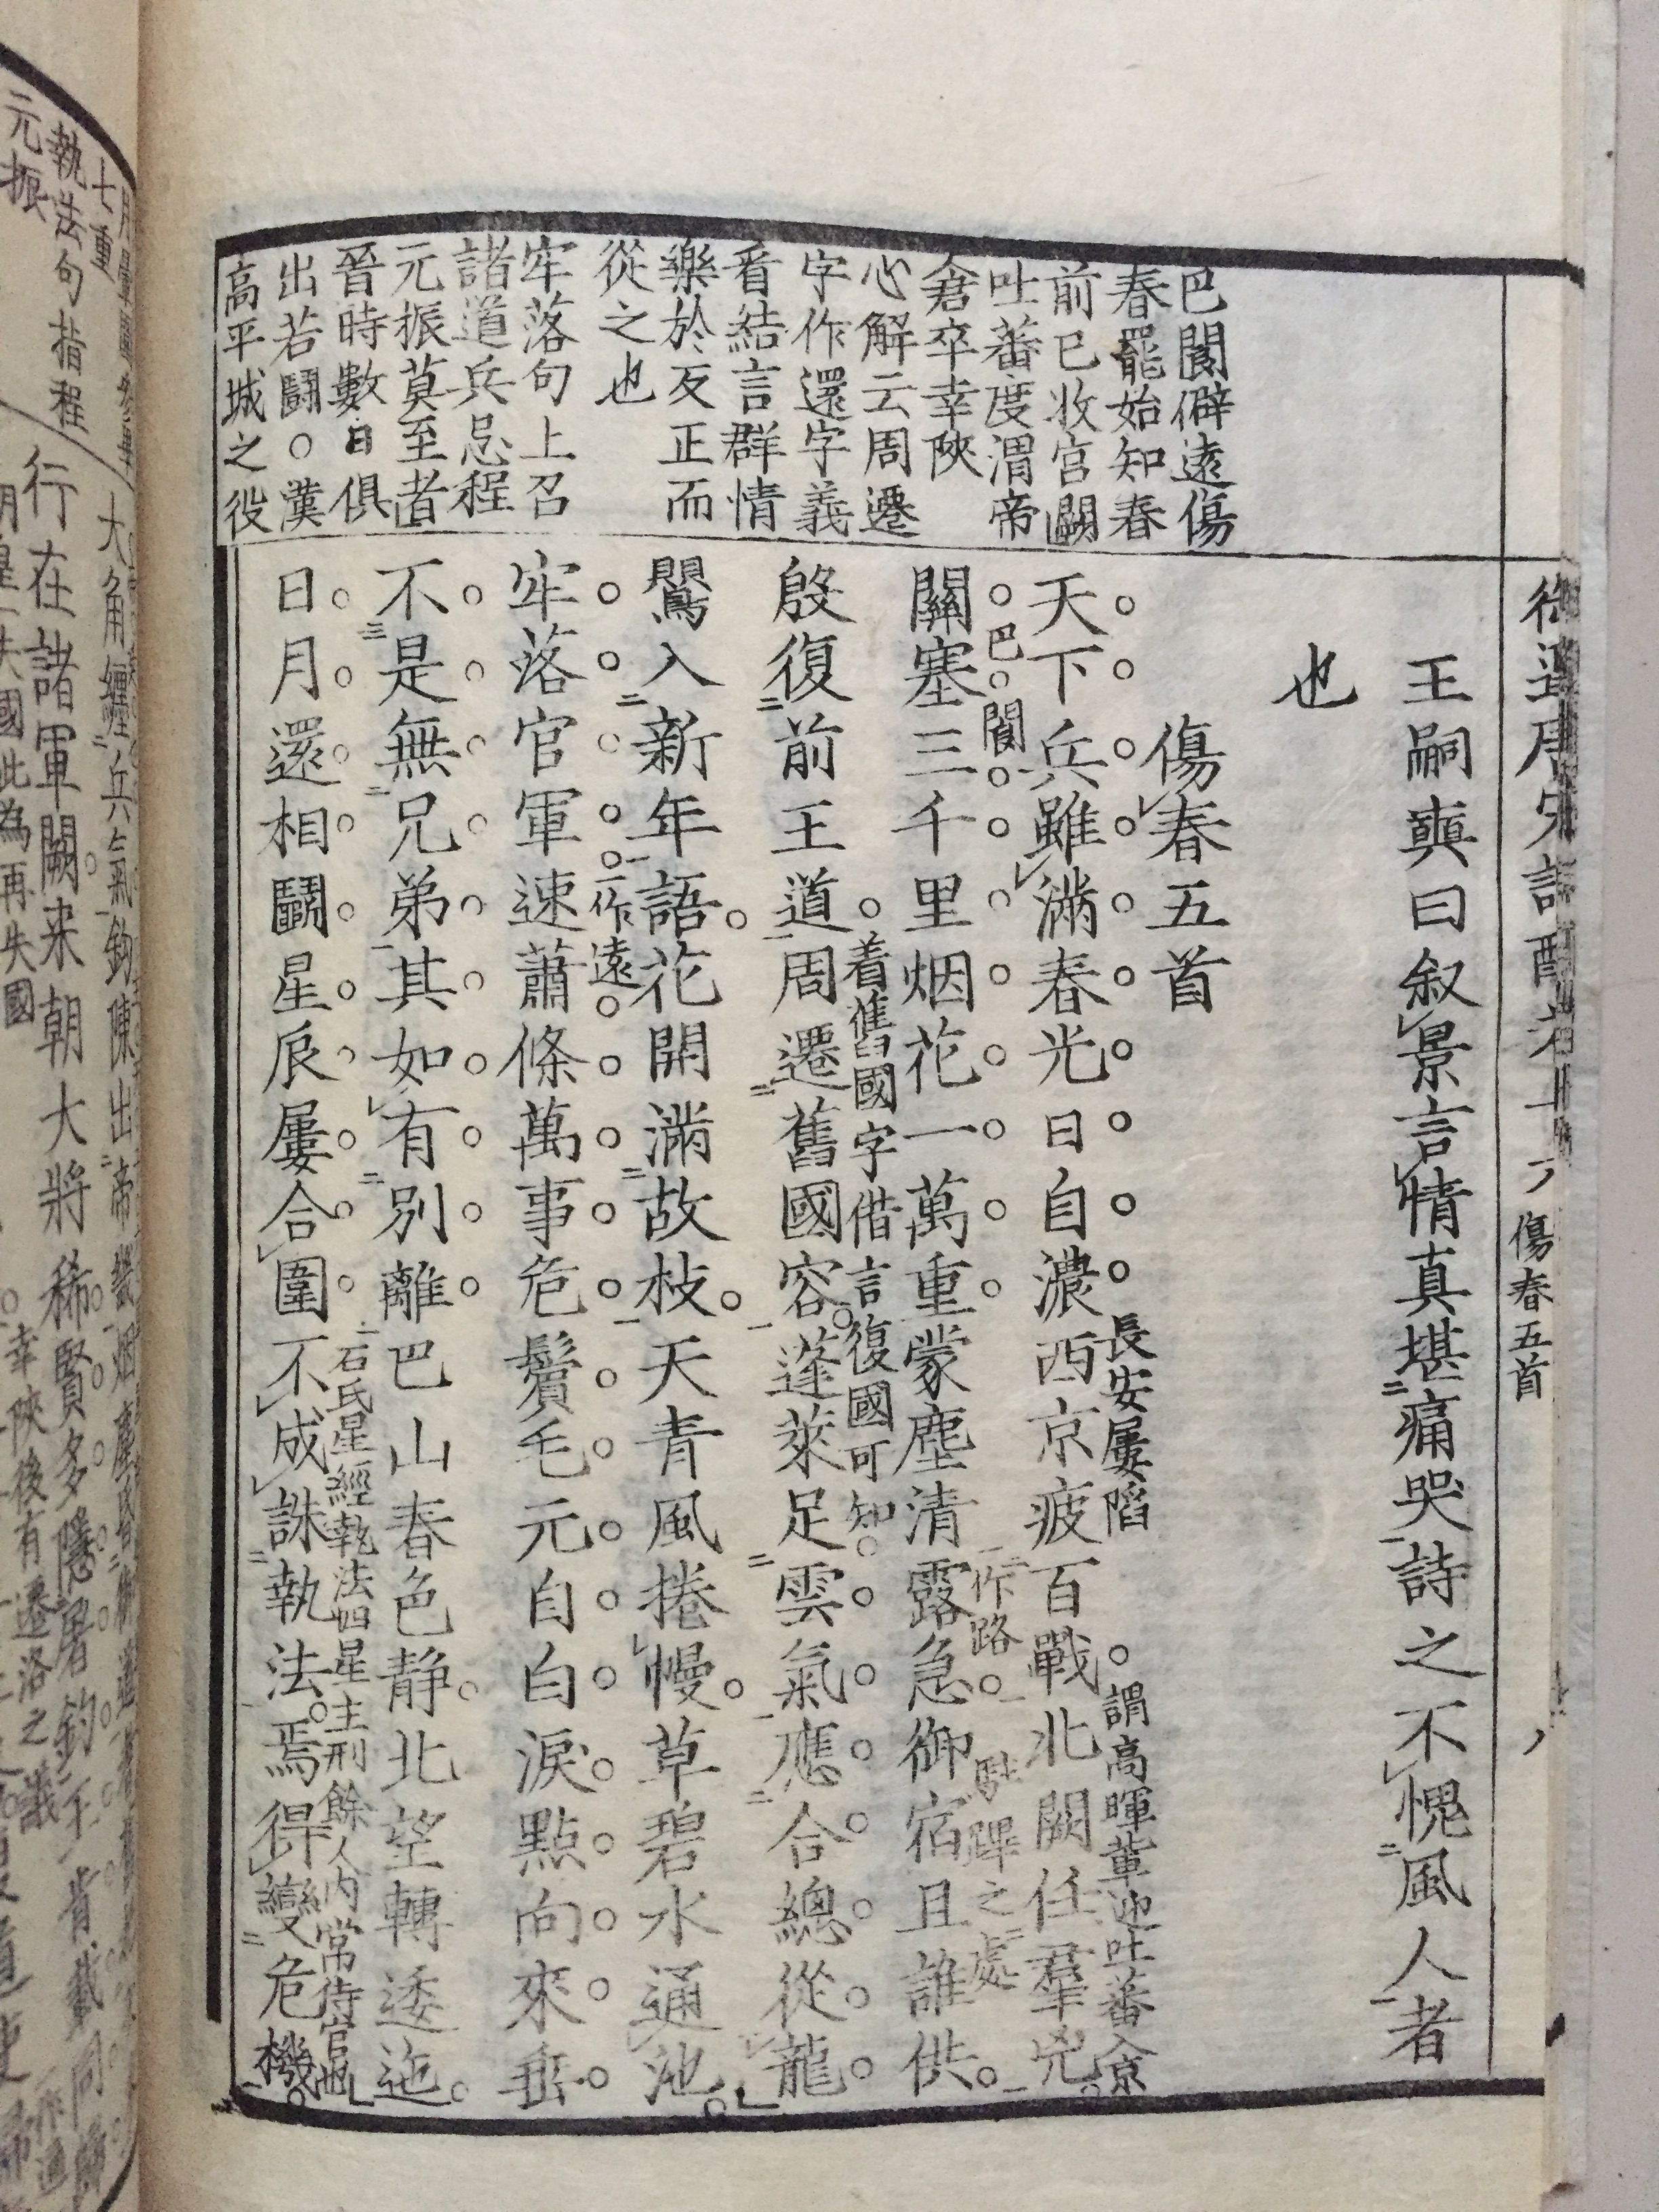 傷春五首
王嗣奭曰叙景言情真堪痛哭詩之不愧風人者
也
巴閬僻遠傷
春罷始知春
前已收宫闕
吐蕃度渭帝
倉卒幸陝
心解云周遷
字作還字義
看結言群情
樂於反正而
從之也
牢落句上召
諸道兵忌程
元振莫至者
晉時數日俱
出若鬬○漢
高平城之役
傷春五首
天下兵雖滿春光日自濃西京疲百戰北闕任羣兇
長安屢陷
謂高暉輩迎吐蕃入京
關塞三千里烟花一萬重蒙塵清露急御宿且誰供
巴閬
一作路
駐蹕之處
殷復前王道周遷舊國容蓬萊足雲氣應合總從龍
着舊國字借言復國可知
鶯入新年語花開滿故枝天青風捲幔草碧水通池
牢落官軍速蕭條萬事危鬢毛元自白淚點向來垂
一作遠
不是無兄弟其如有別離巴山春色静北望轉逶迤
日月還相鬬星辰屢合圍不成誅執法焉得變危機
石氏星經執法四星主刑餘人内常侍官也
大角纏兵氣鈎陳出帝畿烟塵昏御道
行在諸軍闕来朝大將稀賢多隱屠釣王肯載同歸
幸陝後有遷洛之議
七重
執法句指程
元振